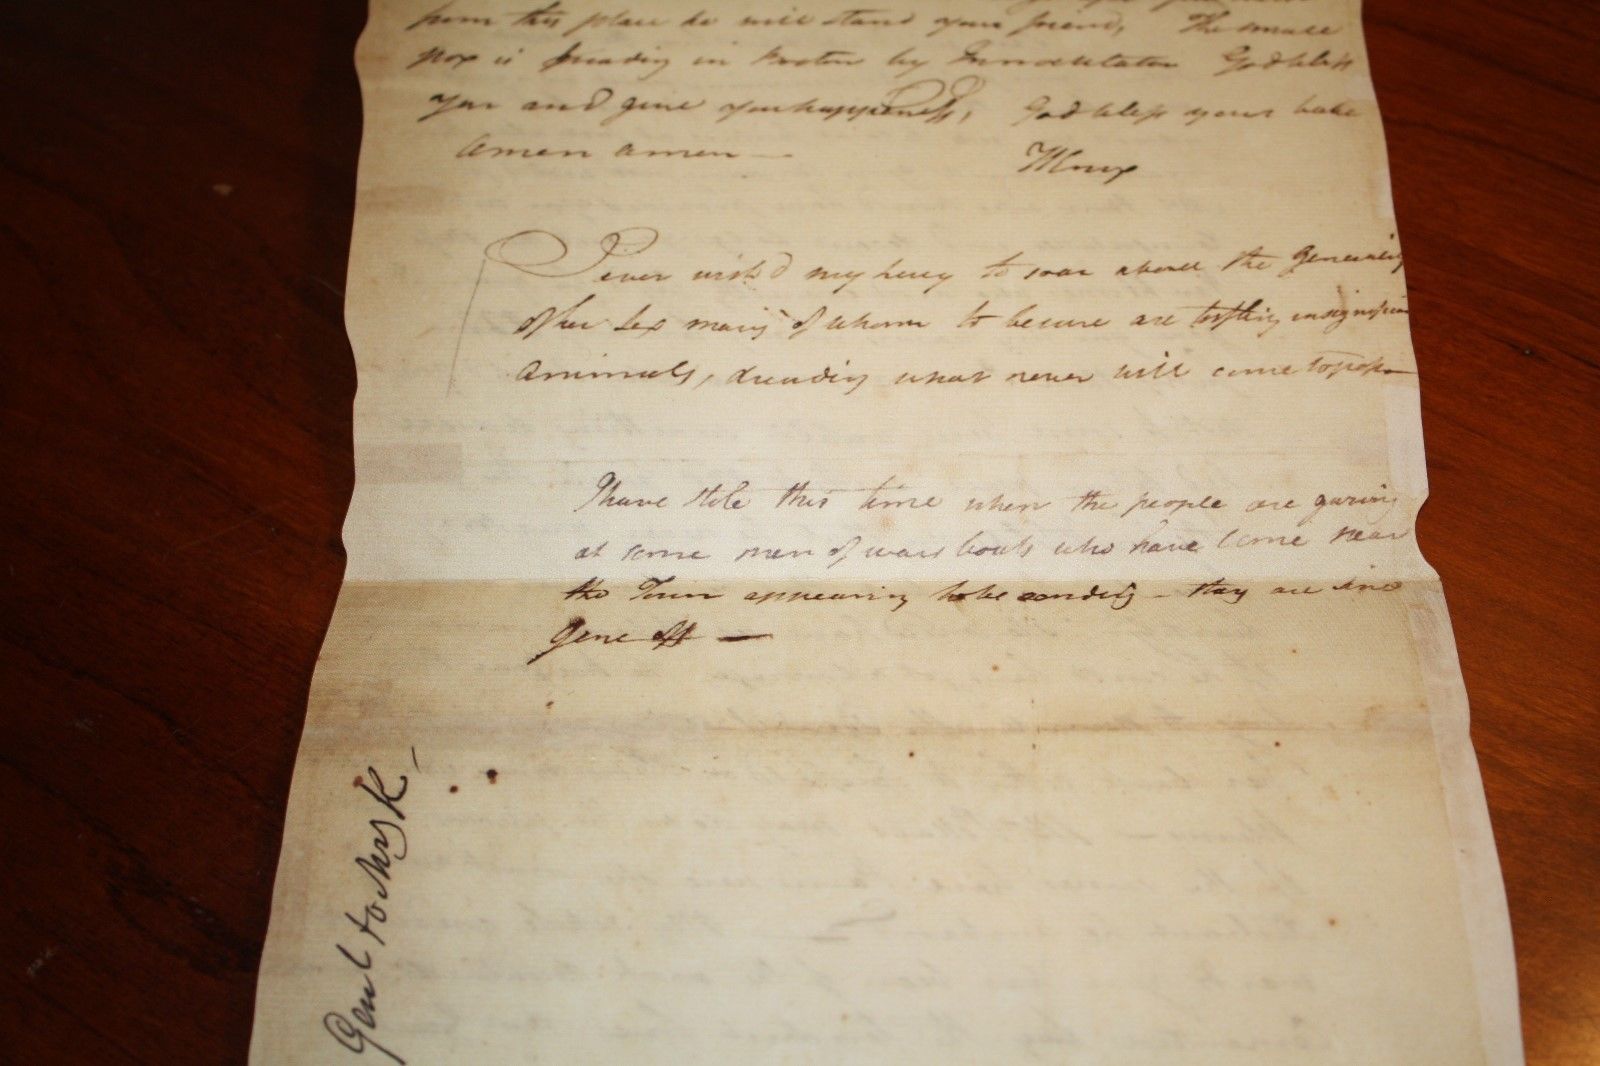 from this place he will stand your friend, The small
pox is spreading in Boston by Innoculation God bless
you and give you happiness, God bless your babe
amen amen —
HKnox
I ever wish'd my Lucy to soar above the Generality
of her sex many of whom to be sure are trifling insignifican
animals, dreading what never will come to pass —
I have stole this time when the people are gazing
at some men of wars boats who have come near
the Town appearing to be sounding — they are since
gone off —
Genl to Mrs K —